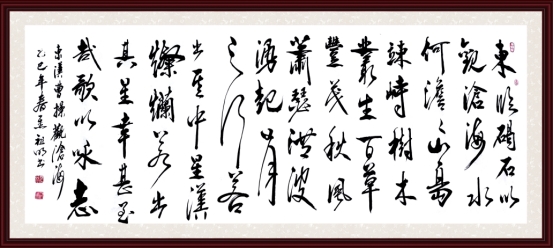 東臨碣石以
觀滄海水
何澹々山島
竦峙樹木
叢生百草
豐茂秋風
蕭瑟洪波
湧起日月
之行若
出其中星漢
燦爛若出
其里幸甚至
哉歌以咏志
東漢曹操觀滄海
乙巳年春祖明書